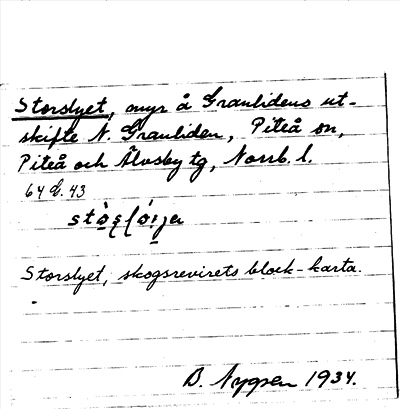 Storslyet, myr å Granlidens ut-
skifte N. Granliden, Piteå sn,
Piteå och Älvsby tg, Norrb. l.
64 C. 43
Storslyet, skogsrevirets block-karta.
B. Nygren 1934.